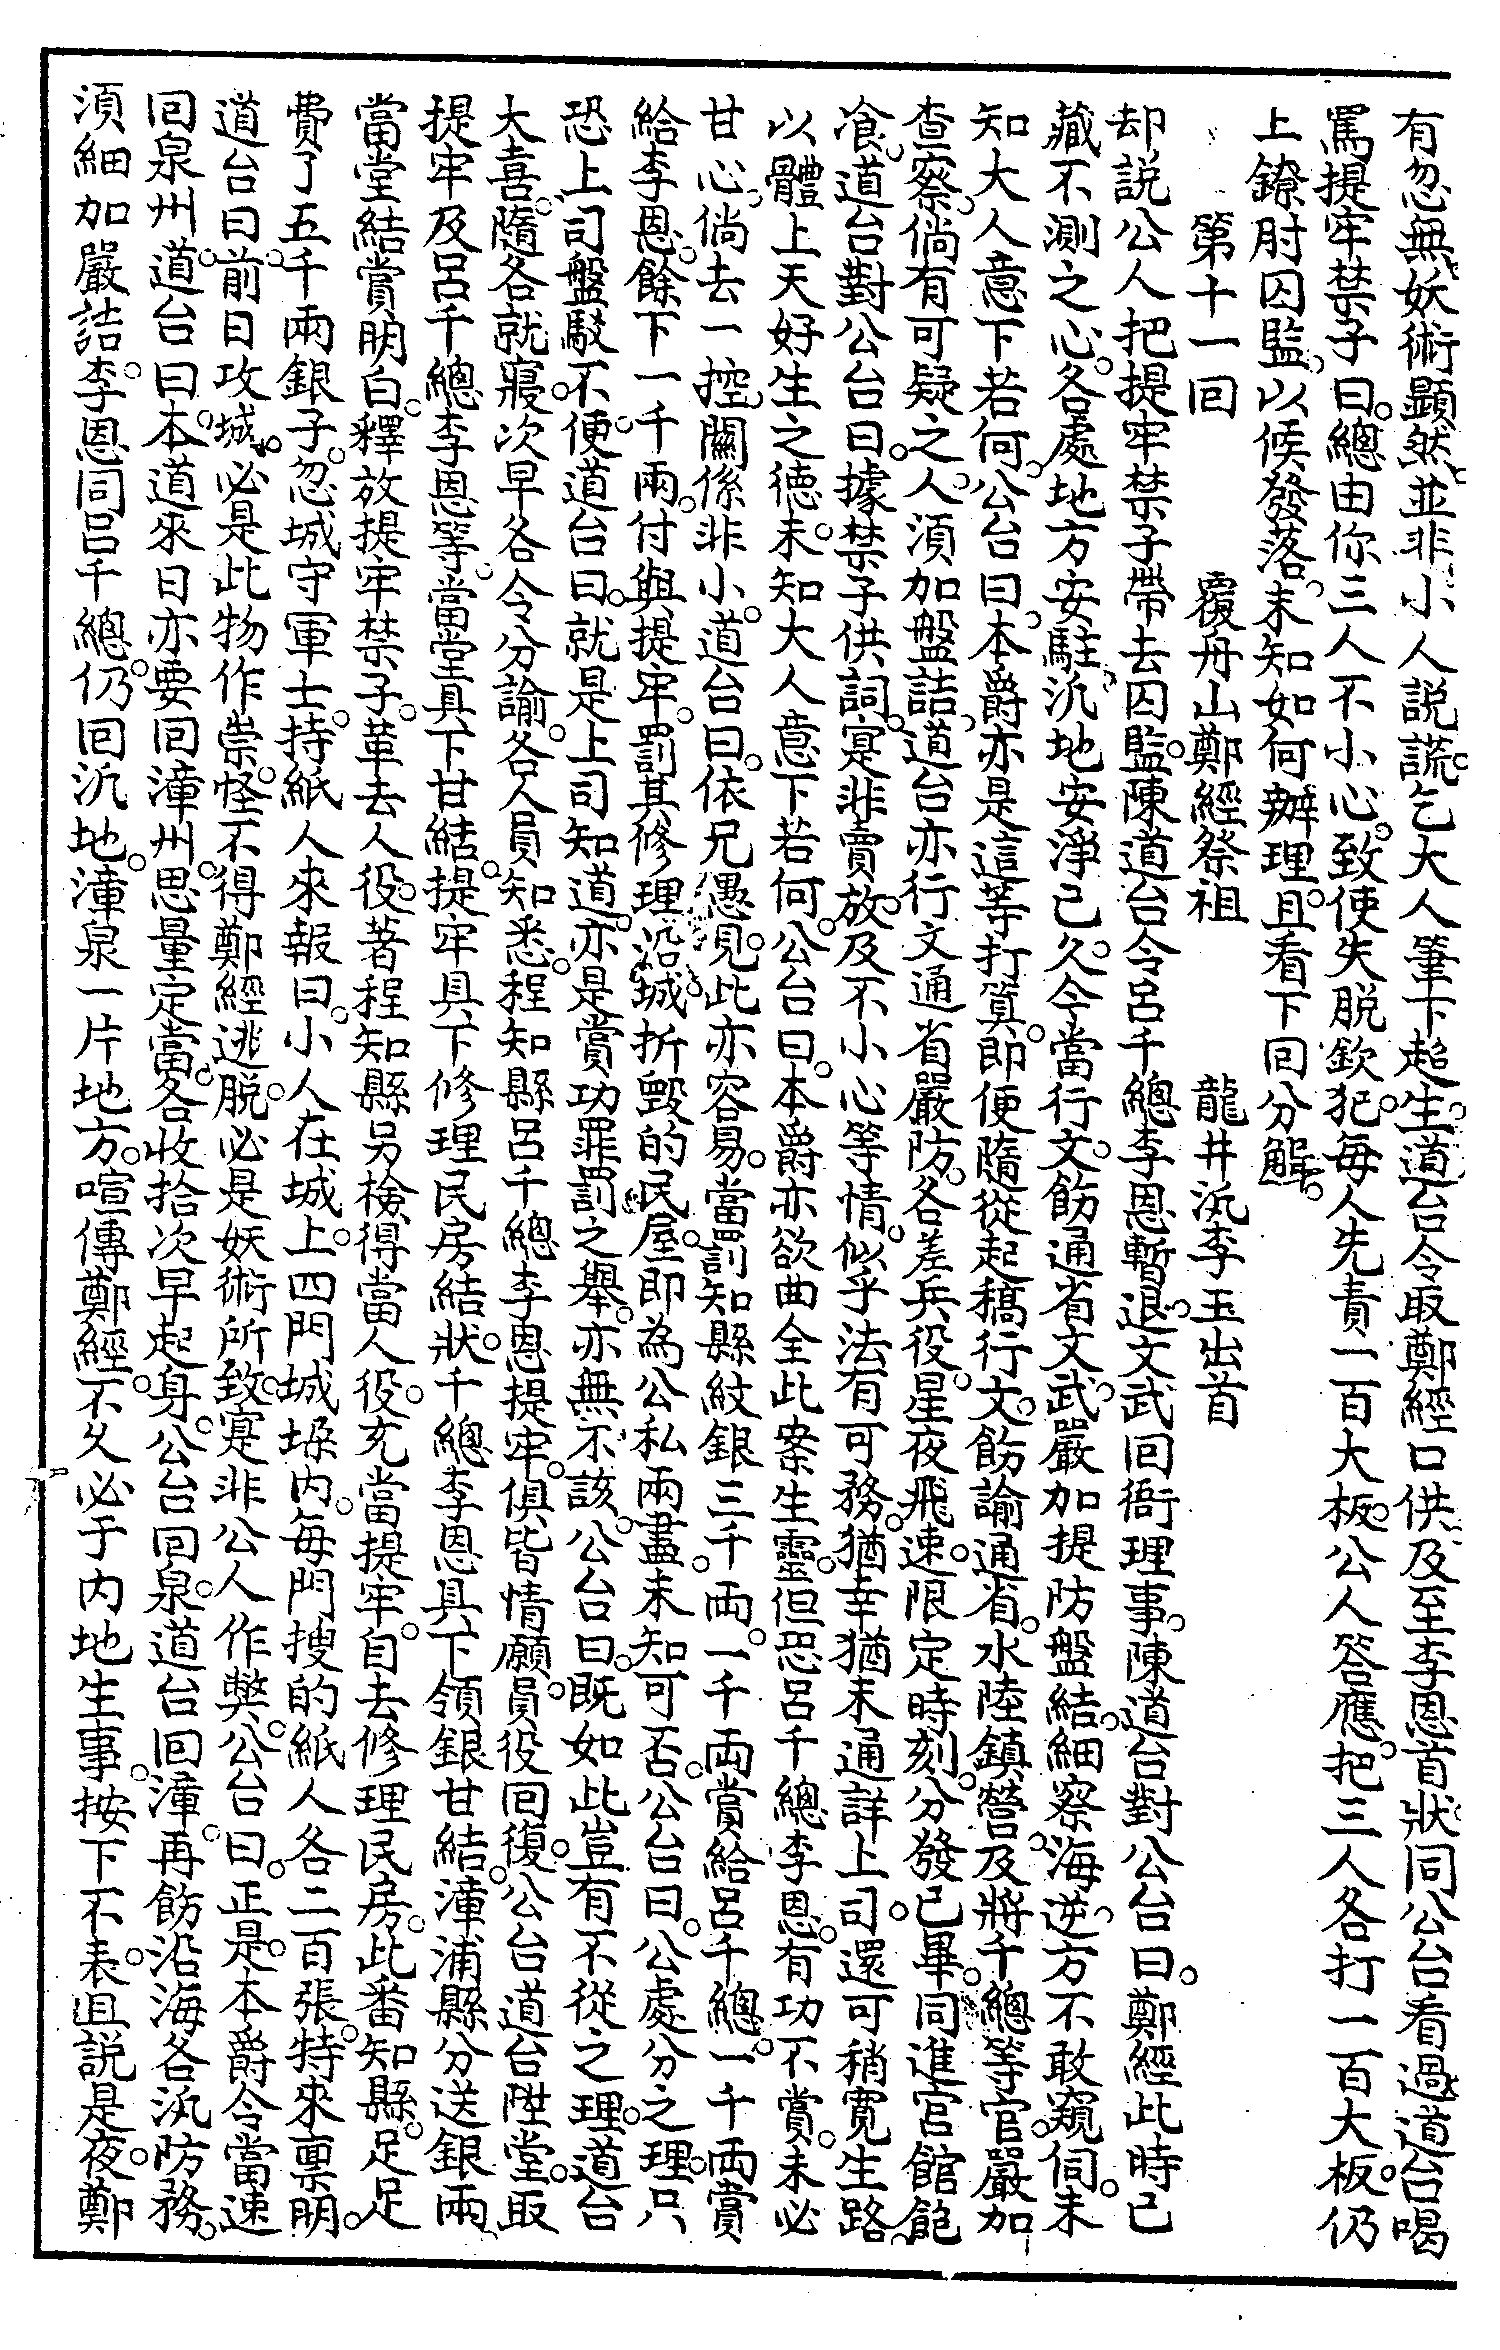 有忽無。妖術顯然。並非小人說謊。乞大人筆下超生。道台令取鄭經口供。及至李恩首狀。同公台看過。道台喝
罵提牢禁子曰。總由你三人不小心。致使失脫欽犯。每人先責一百大板。公人答應。把三人各打一百大板。仍
上鐐肘囚監。以候發落。未知如何辦理。且看下回分解。
第十一回　覆舟山鄭經祭祖　龍井汛李玉出首
却說公人把提牢禁子帶去囚監。陳道台令呂千總李恩暫退。文武回衙理事。陳道台對公台曰。鄭經此時已
藏不測之心。各處地方安駐。汛地安淨已久。今當行文。飭通省文武。嚴加提防盤結。細察海逆。方不敢窺伺。未
知大人意下若何。公台曰。本爵亦是這等打算。即便隨從起稿行文。飭諭通省。水陸鎮營。及將千總等官。嚴加
查察。倘有可疑之人。須加盤詰。道台亦行文通省嚴防。各差兵役。星夜飛速。限定時刻。分發已畢。同進官館飽
飡。道台對公台曰。據禁子供詞。寔非賣放。及不小心等情。似乎法有可務。猶幸猶未通詳上司。還可稍寬生路。
以體上天好生之德。未知大人意下若何。公台曰。本爵亦欲曲全此案生靈。但恐呂千總李恩。有功不賞。未必
甘心。倘去一控。關係非小。道台曰。依兄愚見。此亦容易。當罰知縣紋銀三千両。一千両賞給呂千總。一千両賞
給李恩。餘下一千兩。付與提牢。罰其修理沿城折毀的民屋。即為公私兩盡。未知可否。公台曰。公處分之理。只
恐上司盤駁。不便。道台曰。就是上司知道。亦是賞功罪罰之舉。亦無不該。公台曰。既如此。豈有不從之理。道台
大喜。隨各就寢。次早各令分諭。各人員知悉。程知縣呂千總李恩提牢。俱皆情願。員役回復。公台道台陞堂。取
提牢及呂千總李恩等。當堂具下甘結。提牢具下修理民房結狀。千總李恩具下領銀甘結。漳浦縣分送銀兩
當堂結賞明白。釋放提牢禁子。革去人役。著程知縣另檢得當人役。充當提牢。自去修理民房。此番知縣。足足
費了五千兩銀子。忽城守軍士。持紙人來報曰。小人在城上。四門城垛內。每門搜的紙人各二百張。特來禀明。
道台曰。前日攻城。必是此物作祟怪。不得鄭經逃脫。必是妖術所致。寔非公人作弊。公台曰。正是。本爵令當速
回泉州。道台曰。本道來日亦要回漳州。思量定當。各收拾次早起身。公台回泉。道台回漳。再飭沿海各汛防務。
須細加嚴詰。李恩同呂千總。仍回汛地。漳泉一片地方。喧傳鄭經。不久必于內地生事。按下不表。且說是夜。鄭